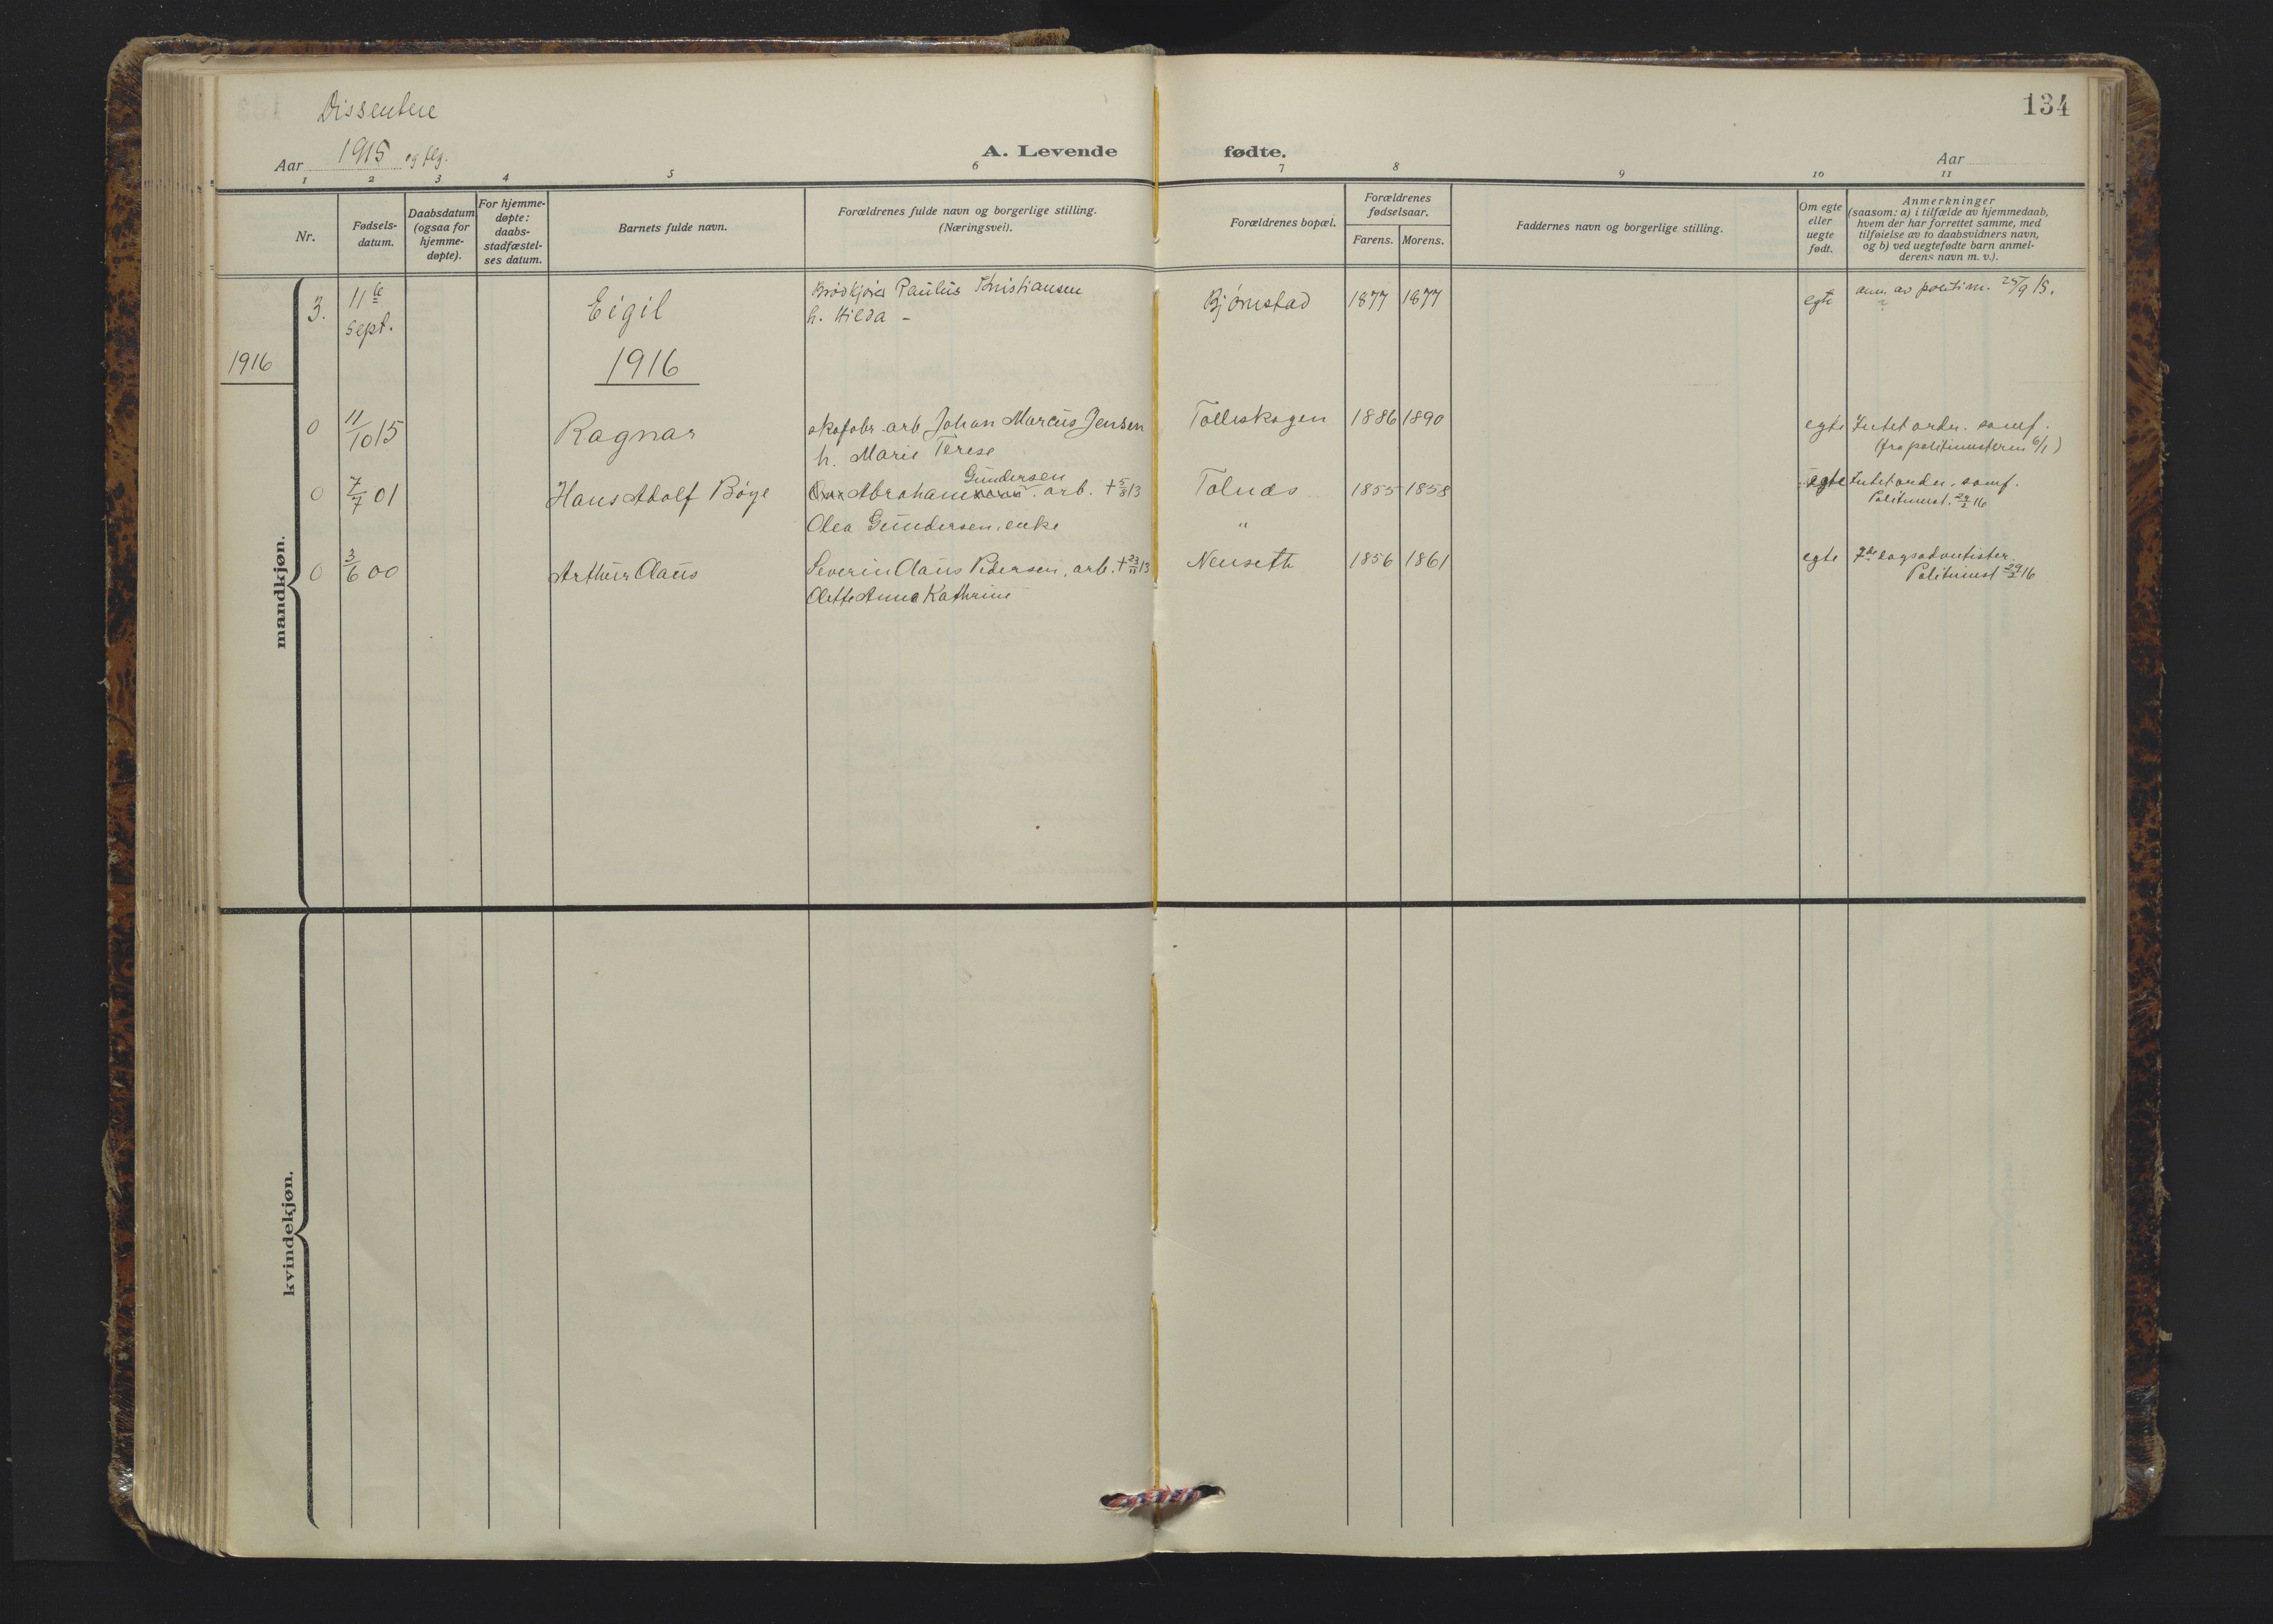 Dissentere
134
Aar 1915 og flg.
A. Levende fødte.
Aar
1 2 3 4 5 6 7 8 9 10 11
Nr.
Fødsels-
datum.
Daabsdatum
(ogsaa for
hjemme-
døpte).
For hjemme-
døpte:
daabs-
stadfæstel-
ses datum.
Barnets fulde navn.
Forældrenes fulde navn og borgerlige stilling.
(Næringsvei).
Forældrenes bopæl.
Forældrenes
fødselsaar.
Farens. Morens.
Faddernes navn og borgerlige stilling.
Om egte
eller
uegte
født.
Anmerkninger
(saasom: a) i tilfælde av hjemmedaab,
hvem der har forrettet samme, med
tilføielse av to daabsvidners navn,
og b) ved uegtefødte barn anmel-
derens navn m. v.).
mandkjøn.
3. 11te Eigil Brødkjører Paulus Kristiansen Bjørnstad 1877 1877 egte anm. av politim. 25/9 15.
sept. h. Hilda -
1916 1916
0 11/10 15 Ragnar skofabr. arb. Johan Marcus Jensen Tolleskogen 1886 1890 egte Intet ordn. samf.
h. Marie Terese (fra politimesteren 6/1)
Gundersen
0 7/7 01 Hans Adolf Bøye Abraham arb. + 5/8 13 Tolnæs 1855 1858 egte Intet ordn. samf.
Politimest. 29/2 16
Olea Gundersen, enke "
0 3/6 00 Arthur Claus Severin Claus Pedersen, arb. + 23/11 13 Nenseth 1856 1861 egte 7de dagsadventister
Politimest 29/2 16
Olette Anne Kathrine
kvindekjøn.